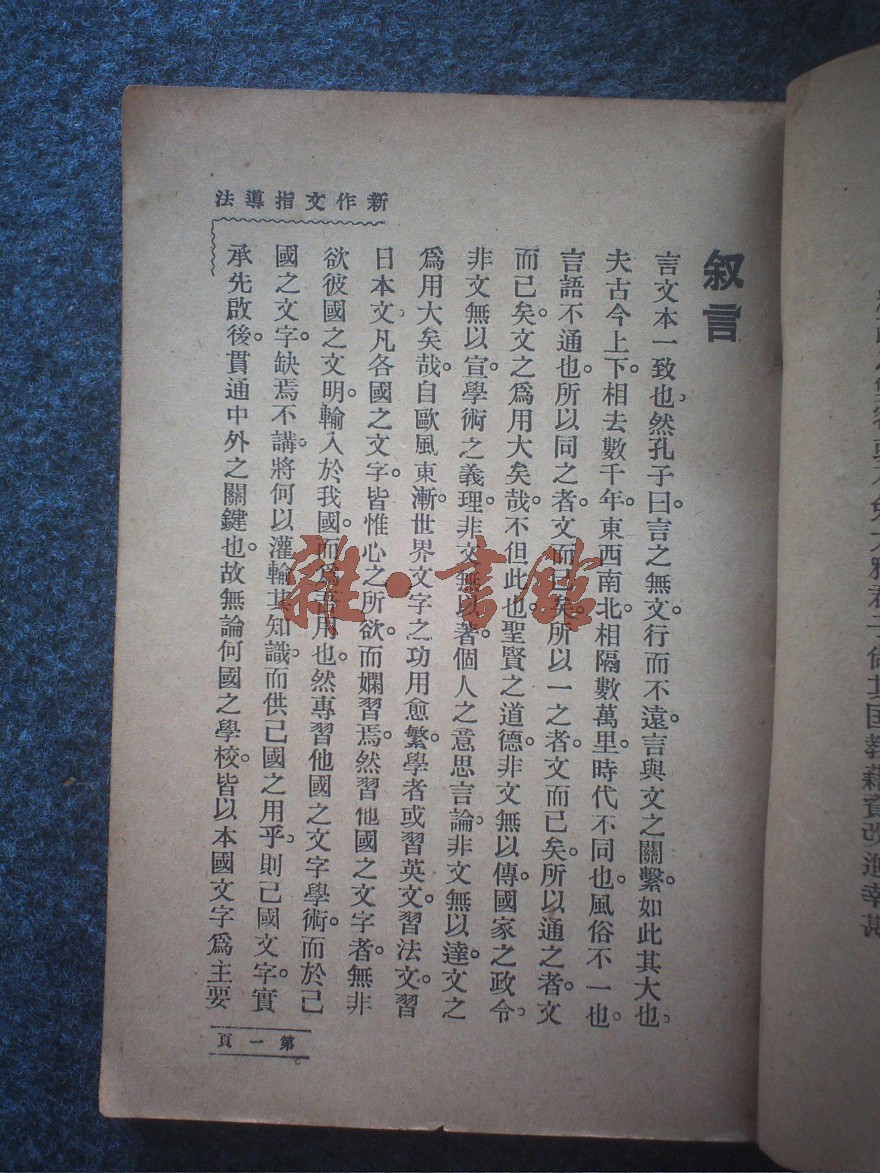 叙言
言文本一致也。然孔子曰。言之無文。行而不遠。言與文之關繫。如此其大也。
夫古今上下。相去數千年。東西南北。相隔數萬里。時代不同也。風俗不一也。
言語不通也。所以同之者。文而已矣。所以一之者。文而已矣。所以通之者。文
而已矣。文之爲用大矣哉。不但此也。聖賢之道德。非文無以傳。國家之政令。
非文無以宣。學術之義理。非文無以著。個人之意思言論。非文無以達。文之
爲用大矣哉。自歐風東漸。世界文字之功用愈繁。學者或習英文。習法文。習
日本文。凡各國之文字。皆惟心之所欲。而嫻習焉。然習他國之文字者。無非
欲彼國之文明。輸入於我國。而爲吾用也。然專習他國之文字學術。而於己
國之文字。缺焉不講。將何以灌輸其知識。而供己國之用乎。則己國文字。實
承先啟後。貫通中外之關鍵也。故無論何國之學校。皆以本國文字爲主要
新作文指導法
第一頁
雜·書館